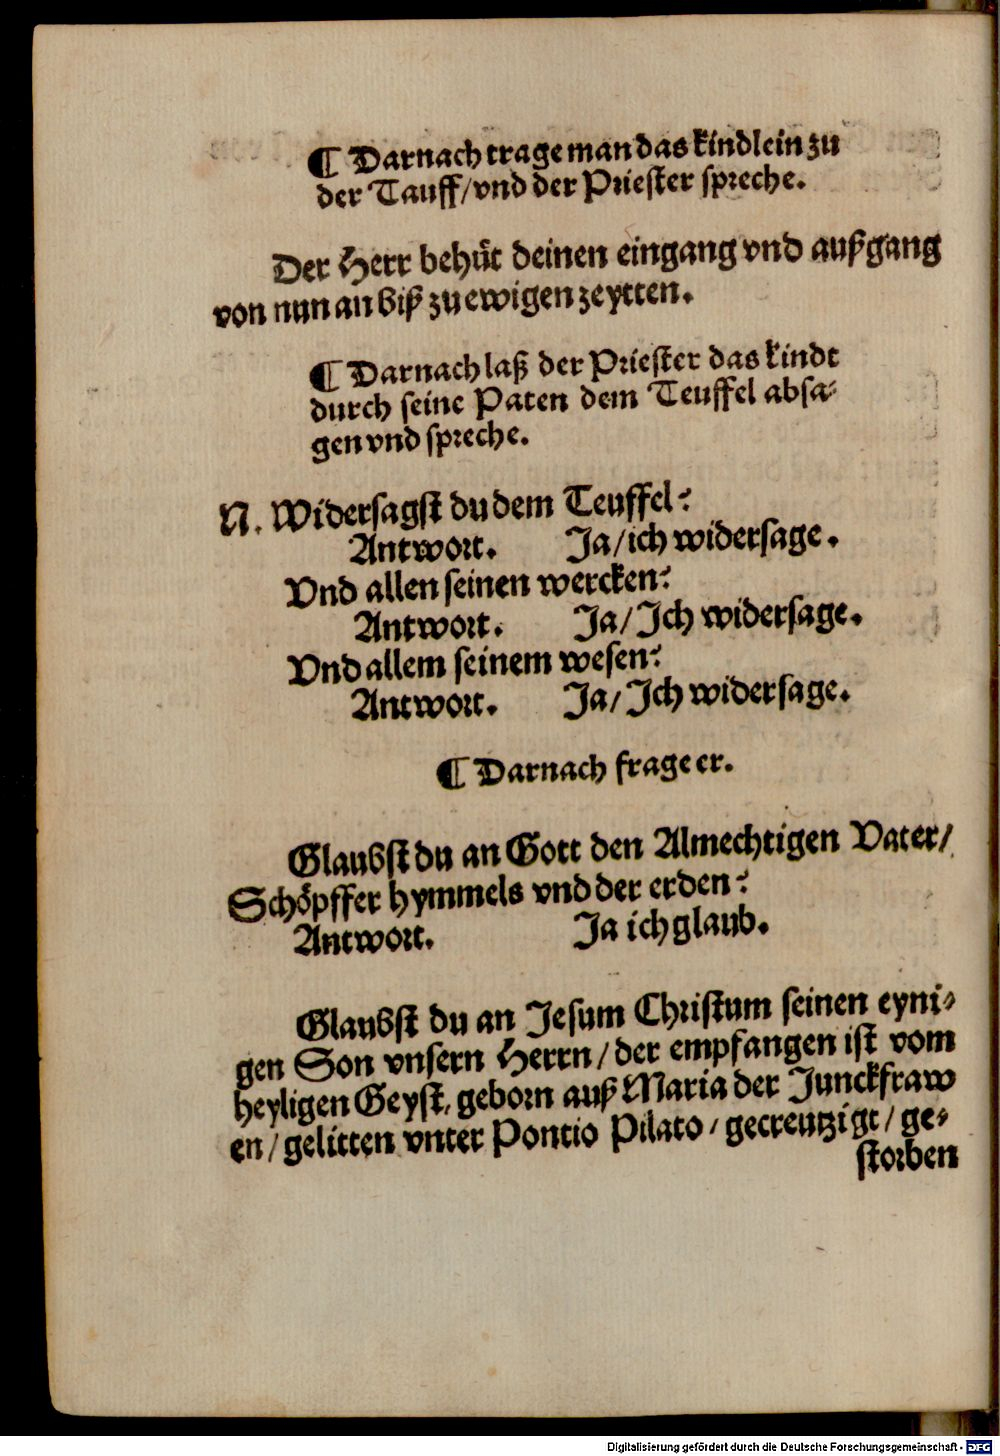 ¶ Darnach trage man das kindlein zu
der Tauff/ vnd der Priester spreche.
Der Herr behüt deinen eingang vnd außgang
von nun an biß zu ewigen zeytten.
¶ Darnach laß der Priester das kindt
durch seine Paten dem Teuffel absa⸗
gen vnd spreche.
N. Widersagst du dem Teuffel?
Antwort. Ja/ ich widersage.
Vnd allen seinen wercken?
Antwort. Ja/ Ich widersage.
Vnd allem seinem wesen?
Antwort. Ja/ Ich widersage.
¶ Darnach frage er.
Glaubst du an Gott den Almechtigen Vater/
Schöpffer hymmels vnd der erden?
Antwort. Ja ich glaub.
Glaubst du an Jesum Christum seinen eyni⸗
gen Son vnsern Herrn/ der empfangen ist vom
heyligen Geyst, geborn auß Maria der Junckfraw
en/ gelitten vnter Pontio Pilato/ gecreutzigt/ ge⸗
storben
Digitalisierung gefördert durch die Deutsche Forschungsgemeinschaft - DFG